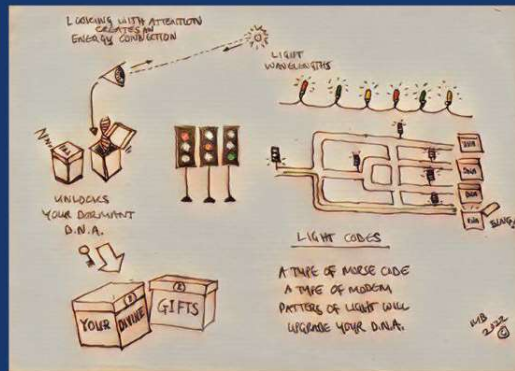 LOOKING WITH ATTENTION
CREATES AN
ENERGY CONNECTION
LIGHT
WAVELENGTHS
UNLOCKS
YOUR DORMANT
D.N.A.
YOUR DIVINE
GIFTS
LIGHT CODES
A TYPE OF MORSE CODE
A TYPE OF MODEM
PATTERS OF LIGHT WILL
UPGRADE YOUR D.N.A.
2022
©